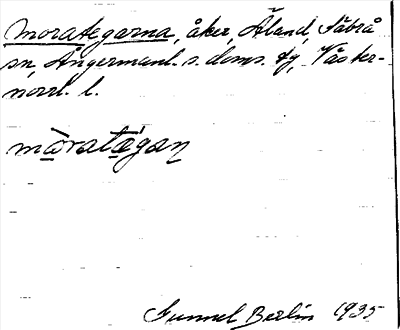 Morategarna, åker, Åland, Säbrå
sn, Ångermanl. s. doms. tg, Väster-
norrl. l.
mòratégaṇ
Gunnel Berlin 1935